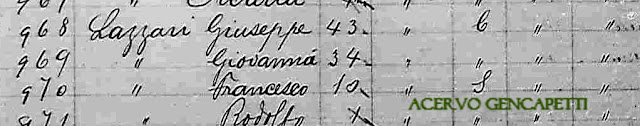 968 Lazzari Giuseppe 43 " C " "
969 " Giovanna 34 " " " "
970 " Francesco 10 " S " "
971 " Rodolfo
ACERVO GENCAPETTI